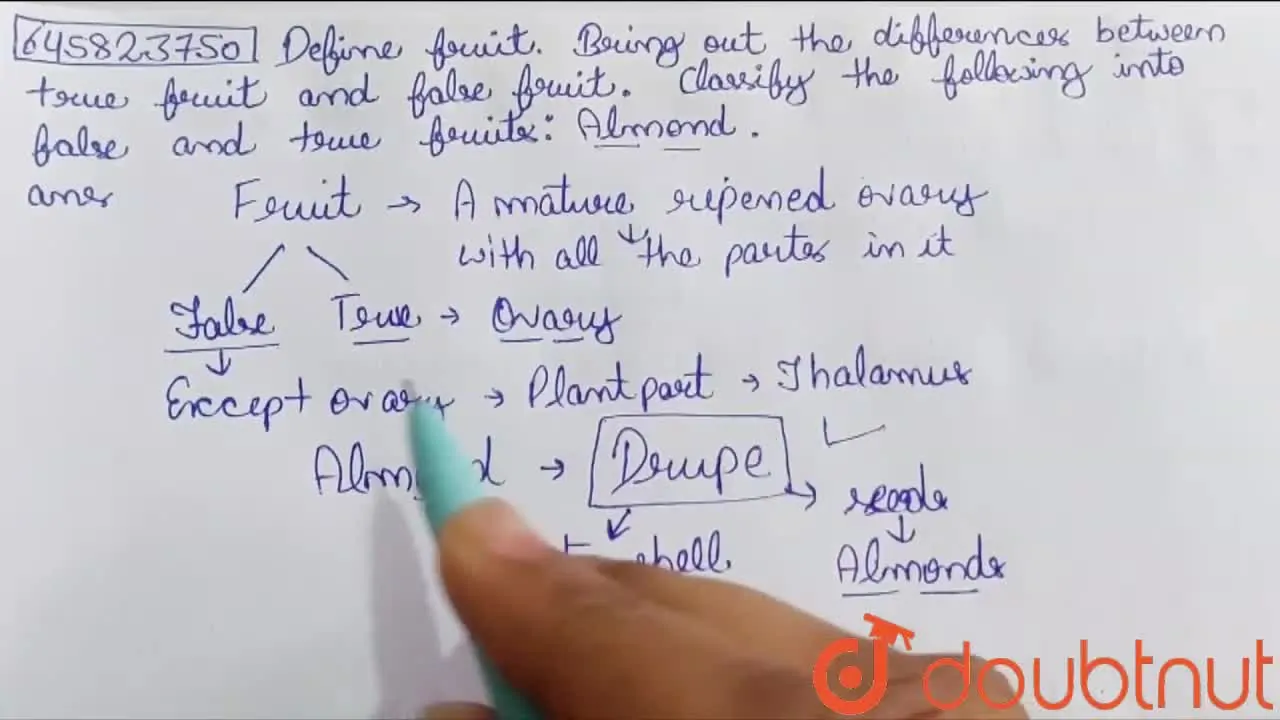 645823750 Define fruit. Bring out the differences between
true fruit and false fruit. Classify the following into
false and true fruits: Almond.
ans Fruit → A mature ripened ovary
with all the parts in it
False True → Ovary
Except ovary → Plant part → Thalamus
→ Drupe
seeds
shell Almonds
doubtnut